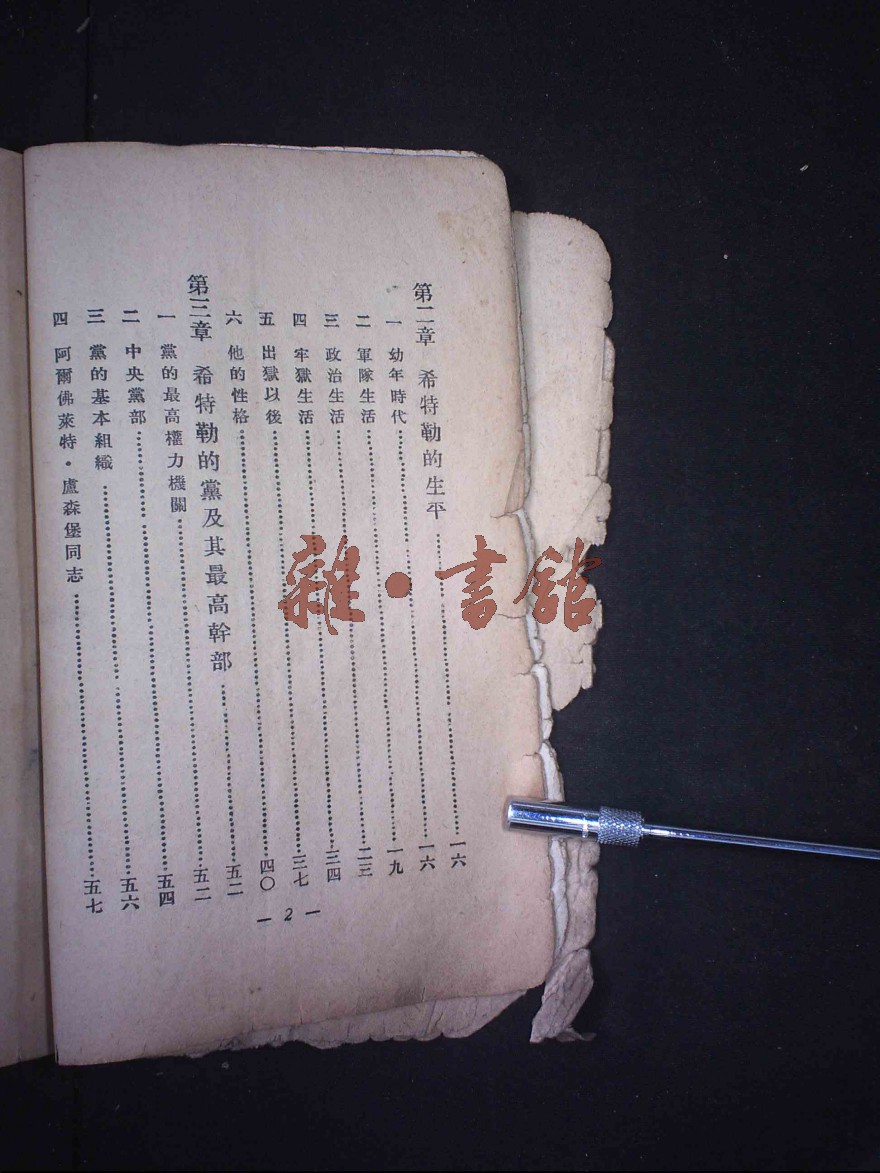 第二章 希特勒的生平……一六
一 幼年時代……一六
二 軍隊生活……一九
三 政治生活……二三
四 牢獄生活……三四
五 出獄以後……三七
六 他的性格……四〇
第三章 希特勒的黨及其最高幹部……五二
一 黨的最高權力機關……五二
二 中央黨部……五四
三 黨的基本組織……五六
四 阿爾佛萊特・盧森堡同志……五七
— 2 —
雜・書館